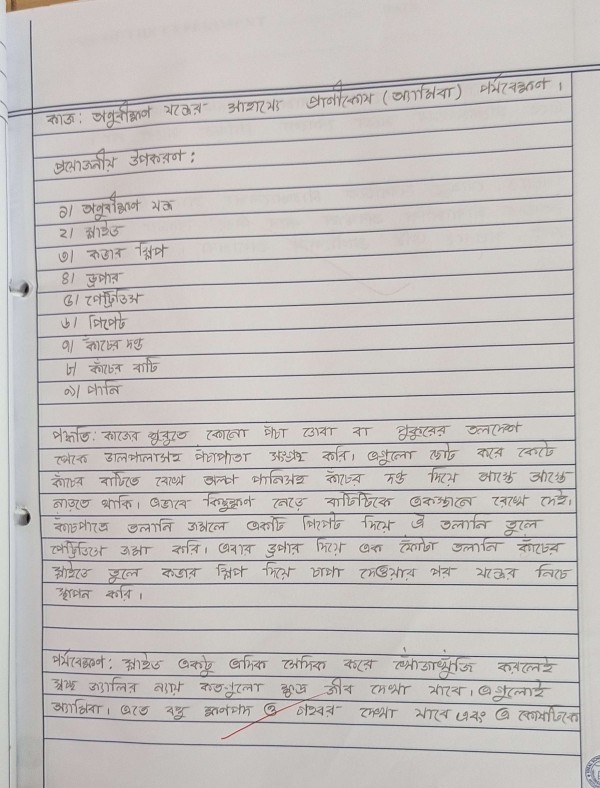 কাজ: অনুবীক্ষণ যন্ত্রের সাহায্যে প্রাণীকোষ (অ্যামিবা) পর্যবেক্ষণ।
প্রয়োজনীয় উপকরণ:
১। অনুবীক্ষণ যন্ত্র
২। স্লাইড
৩। কভার স্লিপ
৪। ড্রপার
৫। পেট্রিডিস
৬। পিপেট
৭। কাঁচের দন্ড
৮। কাঁচের বাটি
৯। পানি
পদ্ধতি: কাজের শুরুতে কোনো পঁচা ডোবা বা পুকুরের তলদেশ
থেকে ডালপালাসহ পঁচাপাতা সংগ্রহ করি। এগুলো ছোট করে কেটে
কাঁচের বাটিতে রেখে অল্প পানিসহ কাঁচের দন্ড দিয়ে আস্তে আস্তে
নাড়তে থাকি। এভাবে কিছুক্ষণ নেড়ে বাটিটিকে একস্থানে রেখে দেই।
কাঁচপাত্রে তলানি জমলে একটি পিপেট দিয়ে ঐ তলানি তুলে
পেট্রিডিসে জমা করি। এবার ড্রপার দিয়ে এক ফোঁটা তলানি কাঁচের
স্লাইডে তুলে কভার স্লিপ দিয়ে চাপা দেওয়ার পর যন্ত্রের নিচে
স্থাপন করি।
পর্যবেক্ষণ: স্লাইড একটু এদিক সেদিক করে খোঁজাখুঁজি করলেই
স্বচ্ছ জ্যালির ন্যায় কতগুলো ক্ষুদ্র জীব দেখা যাবে। এগুলোই
অ্যামিবা। এতে বহু ক্ষণপদ ও গহ্বর দেখা যাবে এবং এ কোষটিকে